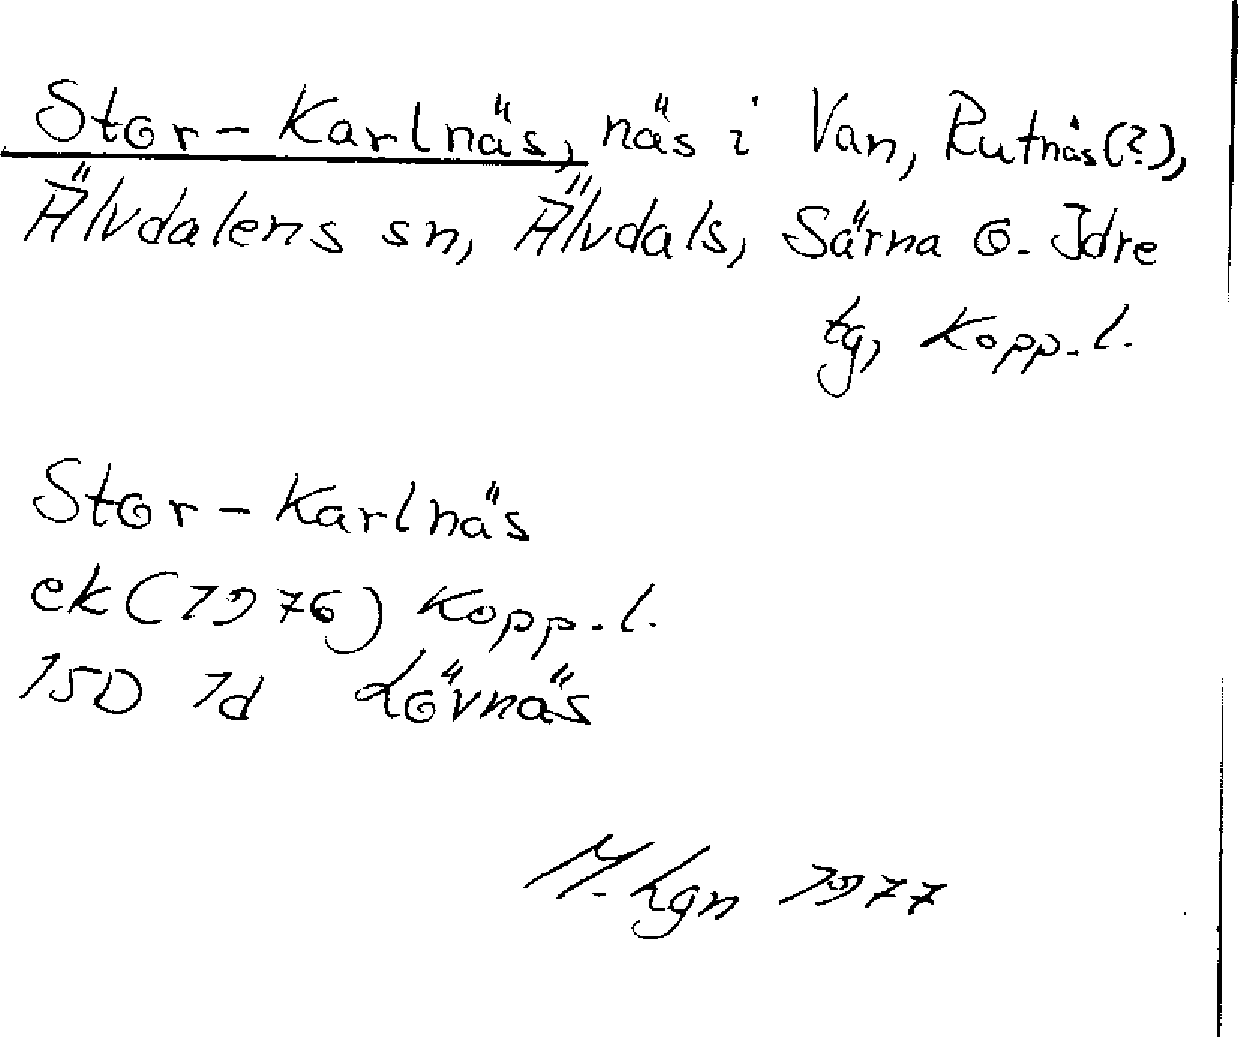 Stor-Karlnäs, näs i Van, Rutnäs(?),
Älvdalens sn, Älvdals, Särna o. Idre
tg, Kopp. l.
Stor-Karlnäs
ek (1976) Kopp. l.
15D 1d Lövnäs
M. Lgn 1977